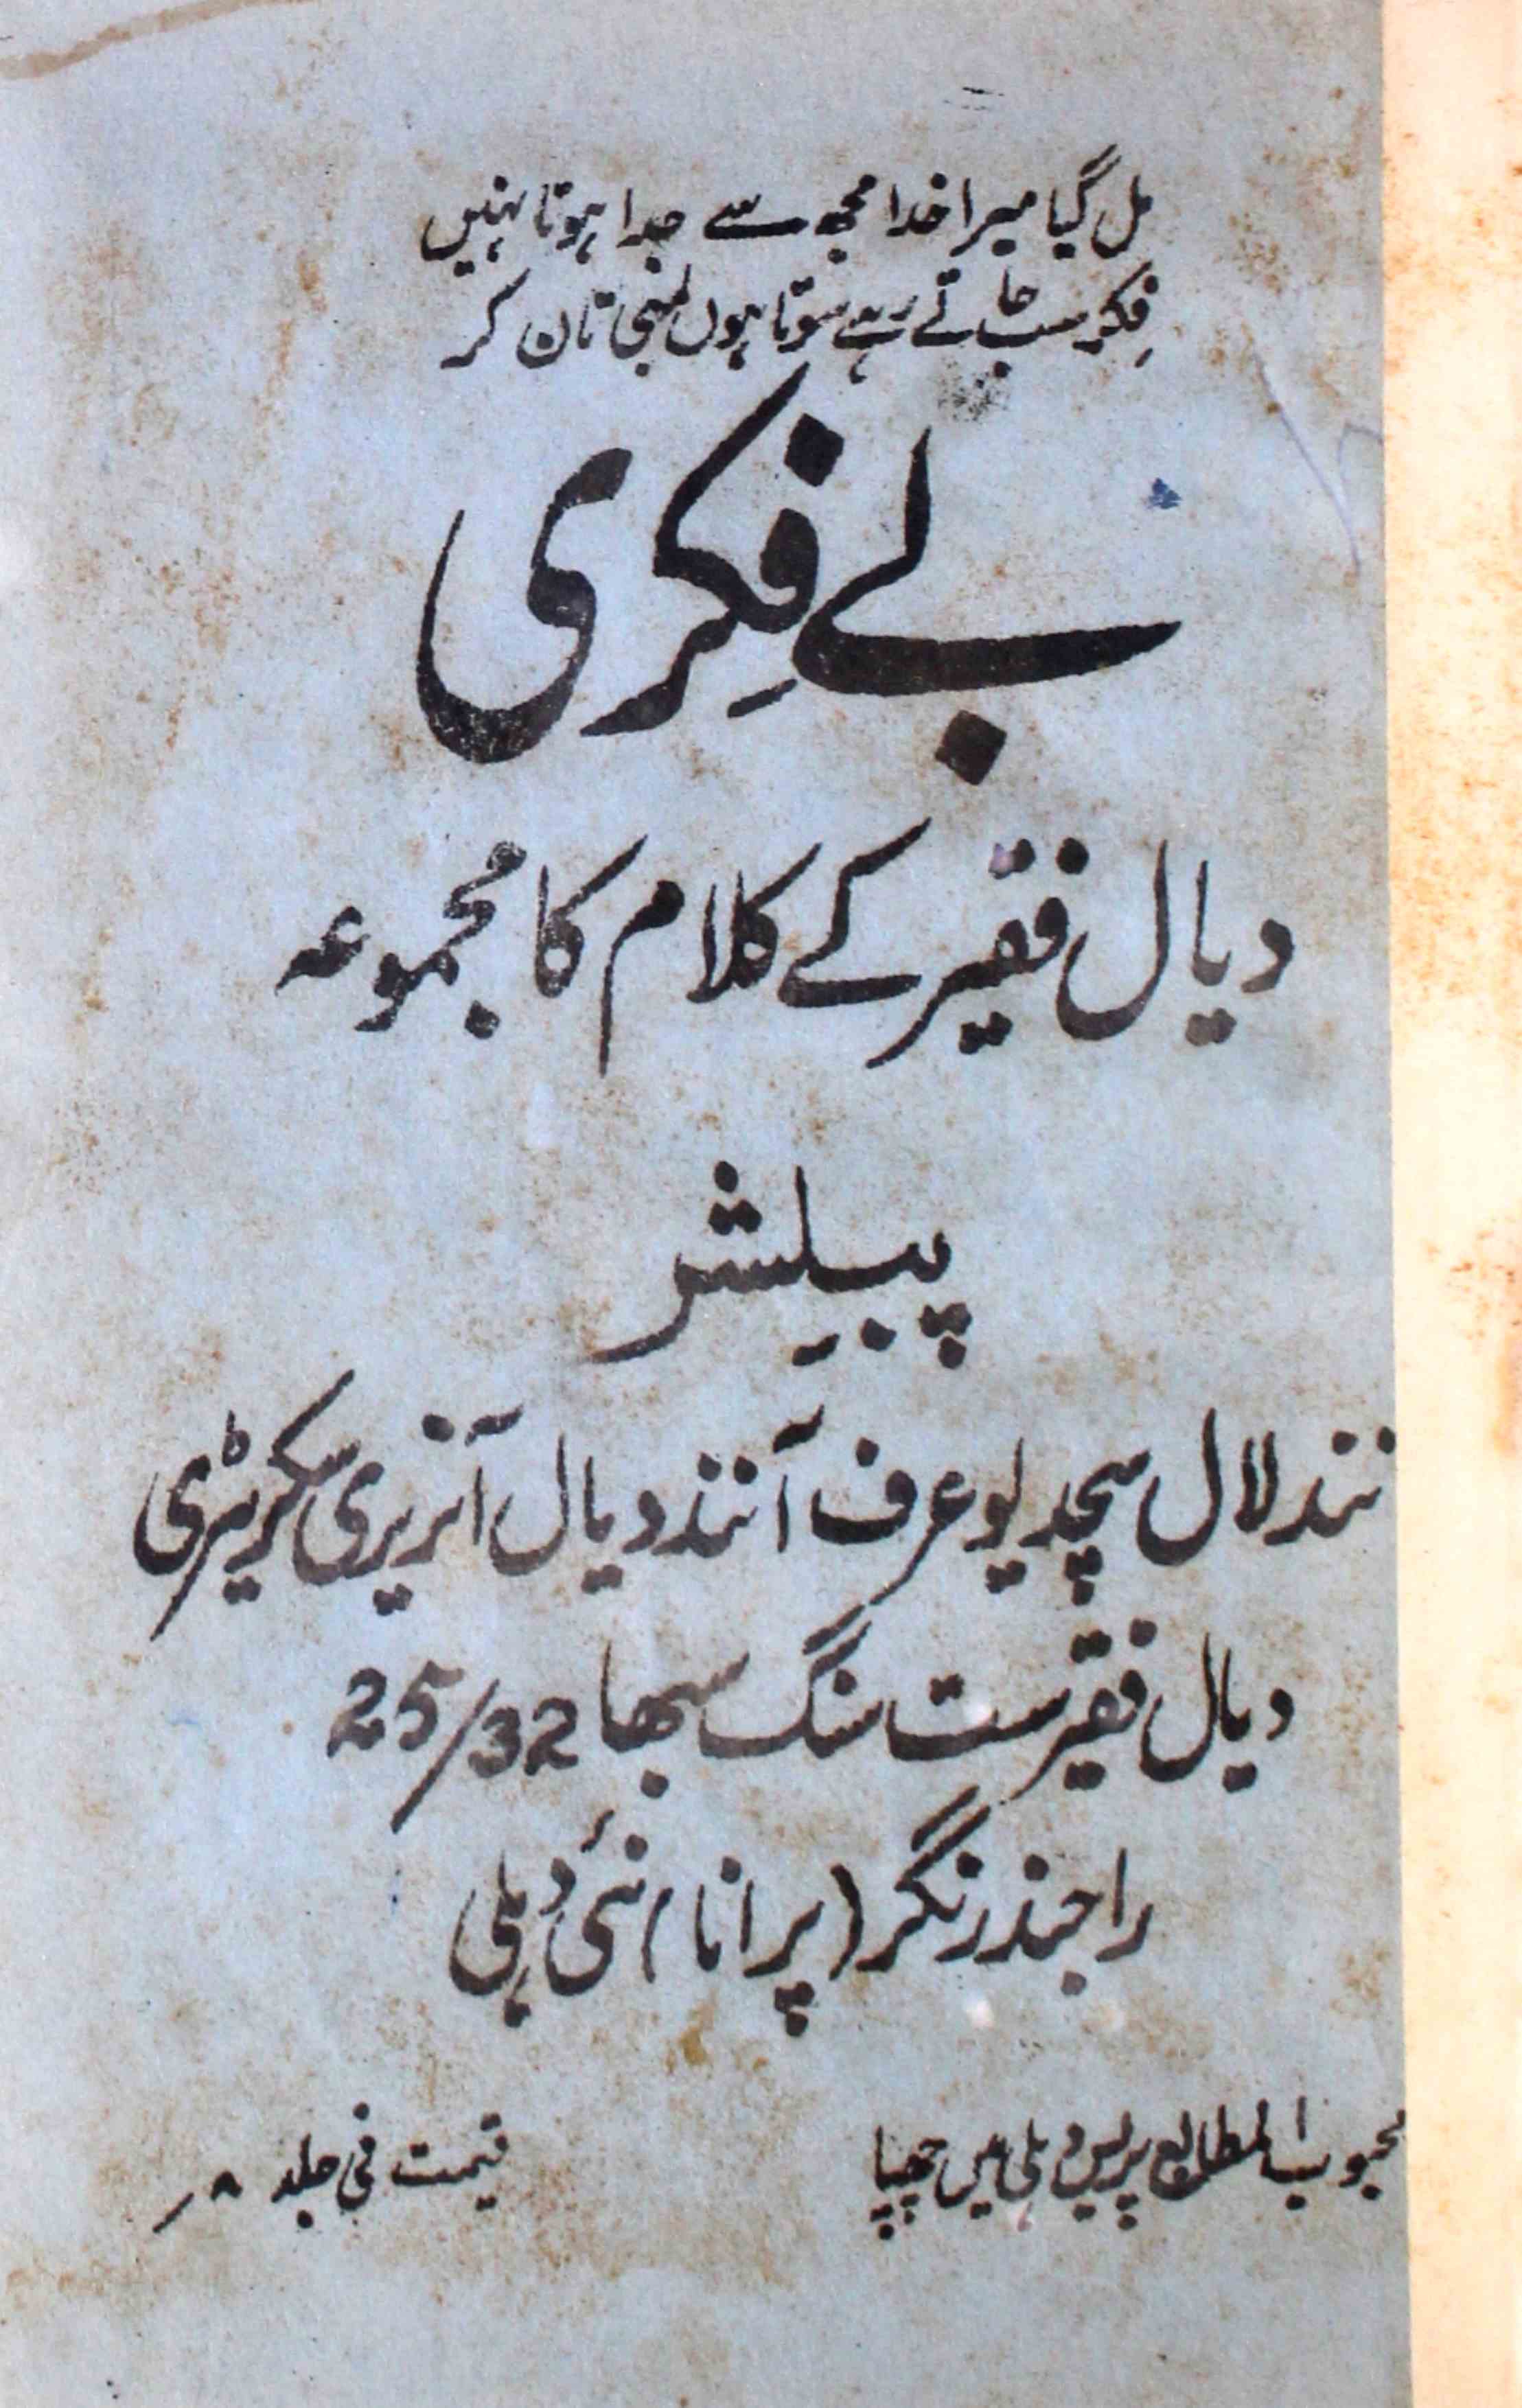 مل گیا میرا خدا مجھ سے جدا ہوتا نہیں
فِکر سب جاتے رہے سوتا ہوں لمبی تان کر
بے فِکری
دیال فقیر کے کلام کا مجموعہ
پبلیشر
نند لال سچدیو عرف آنند دیال آنریری سکریٹری
دیال فقیر ست سنگ سبھا 25/32
راجندر نگر (پرانا) نئی دہلی
محبوب المطابع پریس دہلی میں چھپا
قیمت فی جلد ۸؍